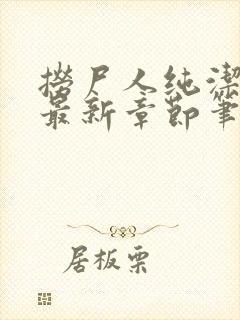 捞尸人纯洁
最新章节笔
居板栗